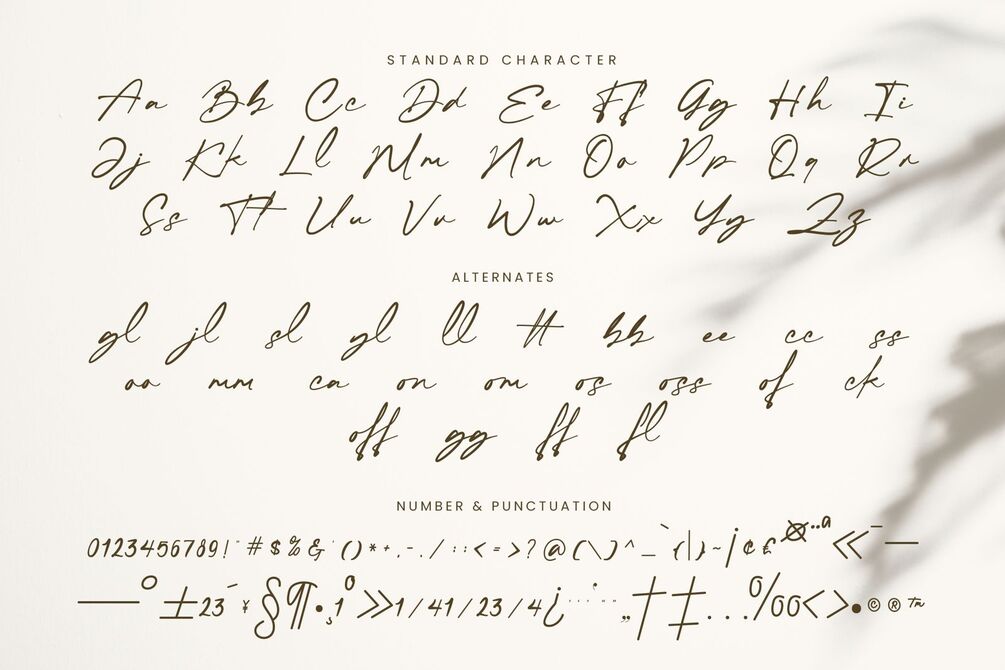 STANDARD CHARACTER
Aa Bb Cc Dd Ee Ff Gg Hh Ii
Jj Kk Ll Mm Nn Oo Pp Qq Rr
Ss Tt Uu Vv Ww Xx Yy Zz
ALTERNATES
gl jl sl yl ll tt bb ee cc ss
oo mm ca on om os oss of ck
off gg ff fl
NUMBER & PUNCTUATION
0123456789!"#$%&'()*+,-./:;<=>?@[\]^_`{|}~¡¢£¤¨ª«¯—
—°±23´¥§¶•¸1º»1/41/23/4¿…„†‡...‰‹›•©®™